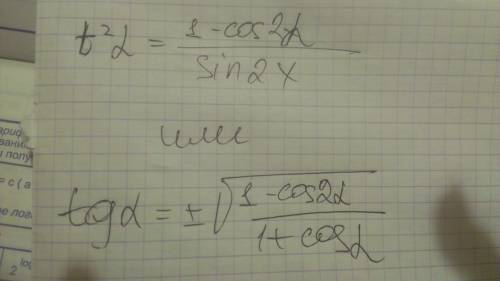 t²α = 1-cos2α / sin2x
или
tgα = ±√(1-cos2α / 1+cosα)
ариф
вани
и полу
= c ( a
ое лога
2 log